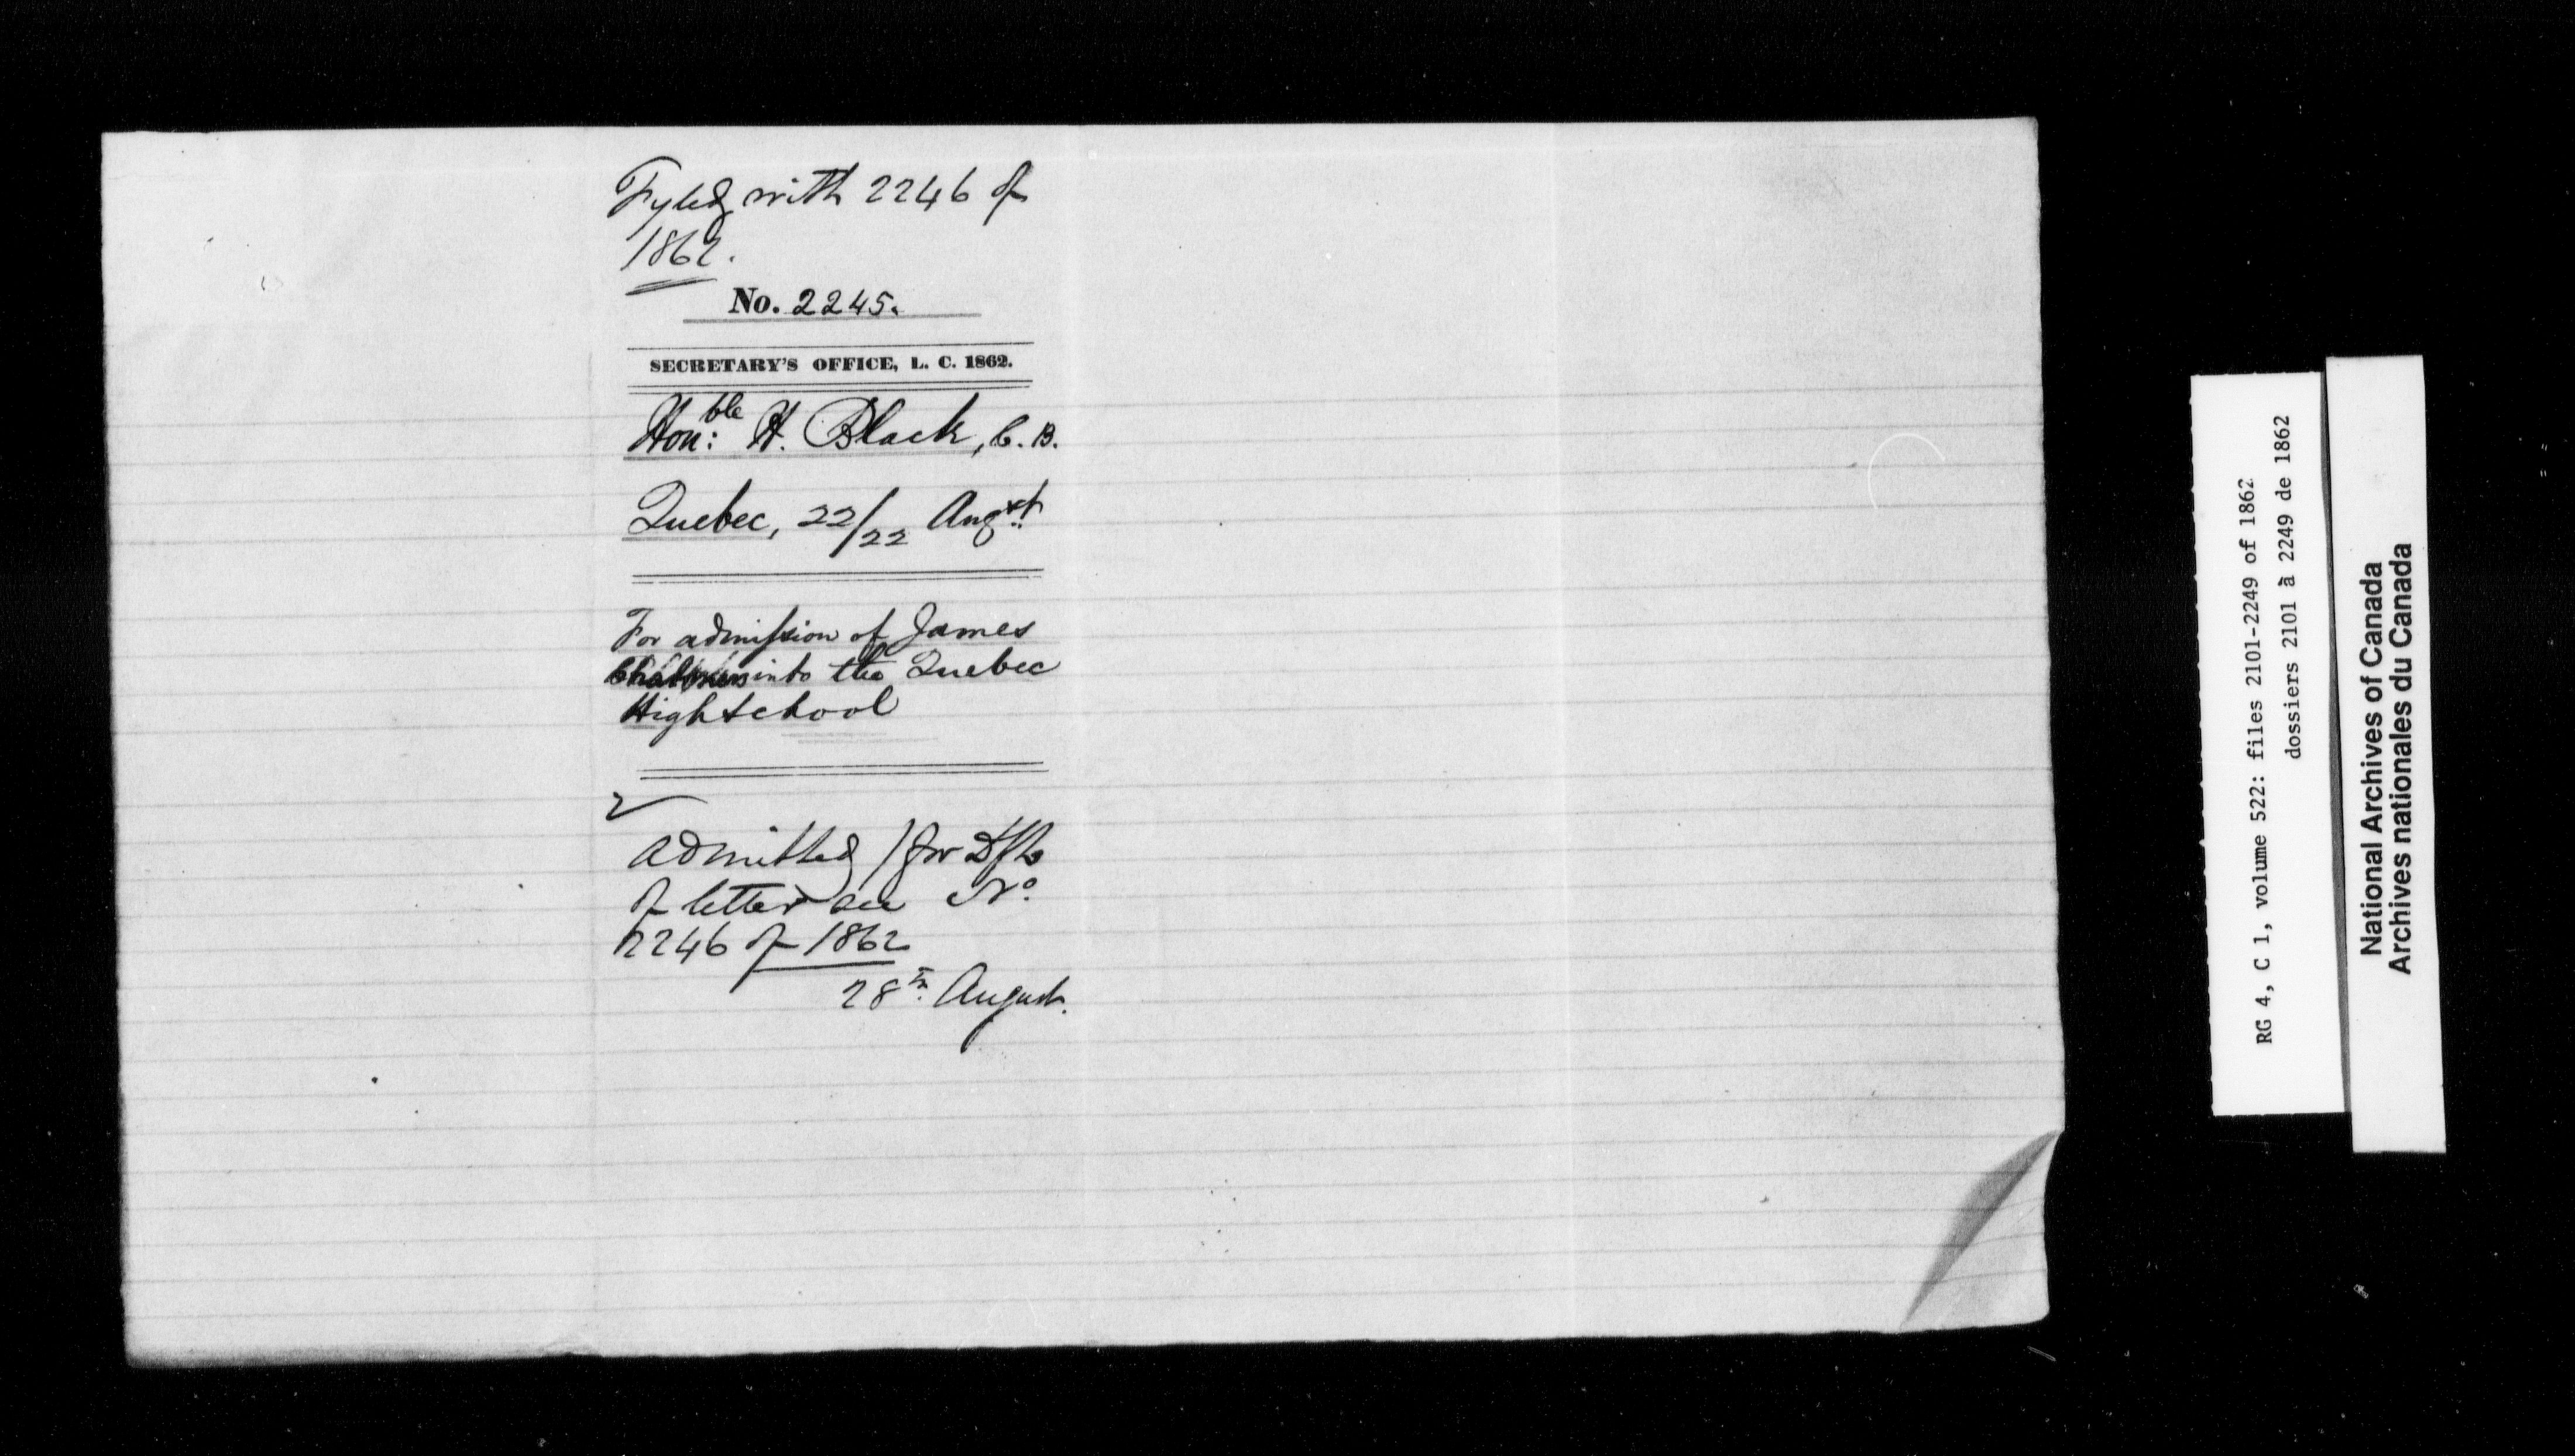 Fyled with 2246 of
1862.
No. 2245.
SECRETARY'S OFFICE, L. C. 1862.
Hon:ble H. Black, C. B.
Quebec, 22/22 Augst
For admission of James
into the Quebec
High School
Admitted / for Dft
of letter see No
2246 of 1862
28th August.
RG 4, C 1, volume 522: files 2101-2249 of 1862
dossiers 2101 à 2249 de 1862
National Archives of Canada
Archives nationales du Canada